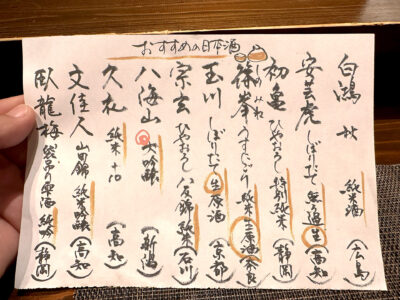 おすすめの日本酒
白鴻 秋 純米酒 (広島)
安芸虎 しぼりたて 無ろ過 生 (高知)
初亀 ひやおろし 特別純米 (静岡)
篠峯 しの みね うすにごり 純米 生原酒 (奈良)
玉川 しぼりたて 生原酒 (京都)
宗玄 ひやおろし 八反錦 純米 (石川)
八海山 大吟醸 (新潟)
久礼 純米 +10 (高知)
文佳人 山田錦 純米吟醸 (高知)
臥龍梅 袋吊り原酒 純吟 (静岡)